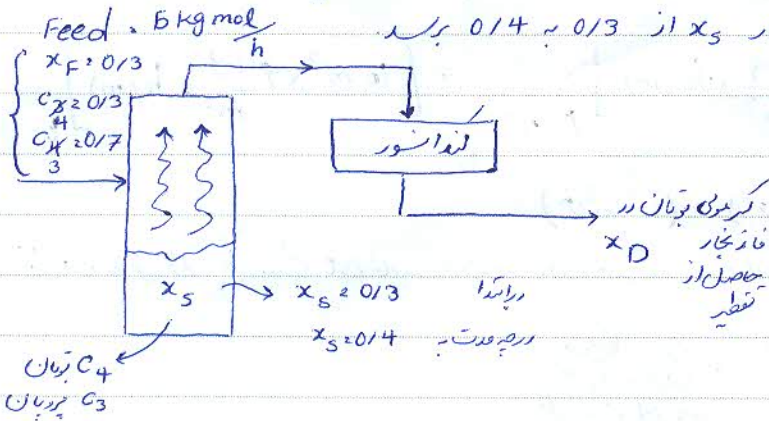 Feed. 5 kgmol/h
ر x_s از 0/3 به 0/4 برسد
x_F = 0/3
C_4 = 0/3
C_3 = 0/7
کندانسور
کسر مولی بوتان در
فاز بخار x_D
حاصل از
تقطیر
x_s x_s = 0/3 در ابتدا
x_s = 0/4 در چه مدت به
C_4 بوتان
C_3 پروپان